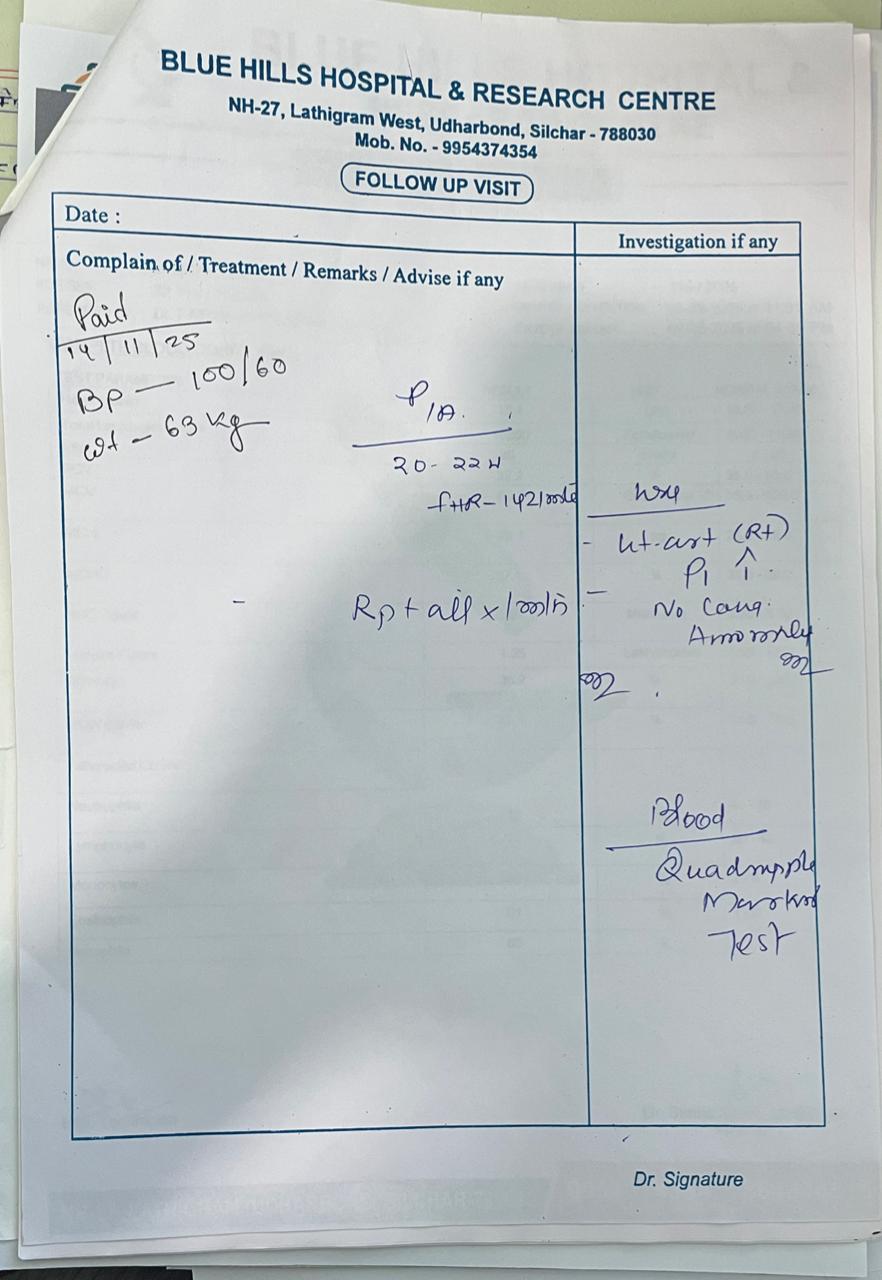 BLUE HILLS HOSPITAL & RESEARCH CENTRE
NH-27, Lathigram West, Udharbond, Silchar - 788030
Mob. No. - 9954374354
FOLLOW UP VISIT
Date :
Investigation if any
Complain of / Treatment / Remarks / Advise if any
Paid
14/11/25
BP — 100/60
wt - 63 kg
P/A.
20-22W
FHR-142/
- Ut-art (Rt)
PI ↑.
- Rpt all x 1
- No Cong.
Anomaly
Blood
Quadrupple
Marker
Test
Dr. Signature